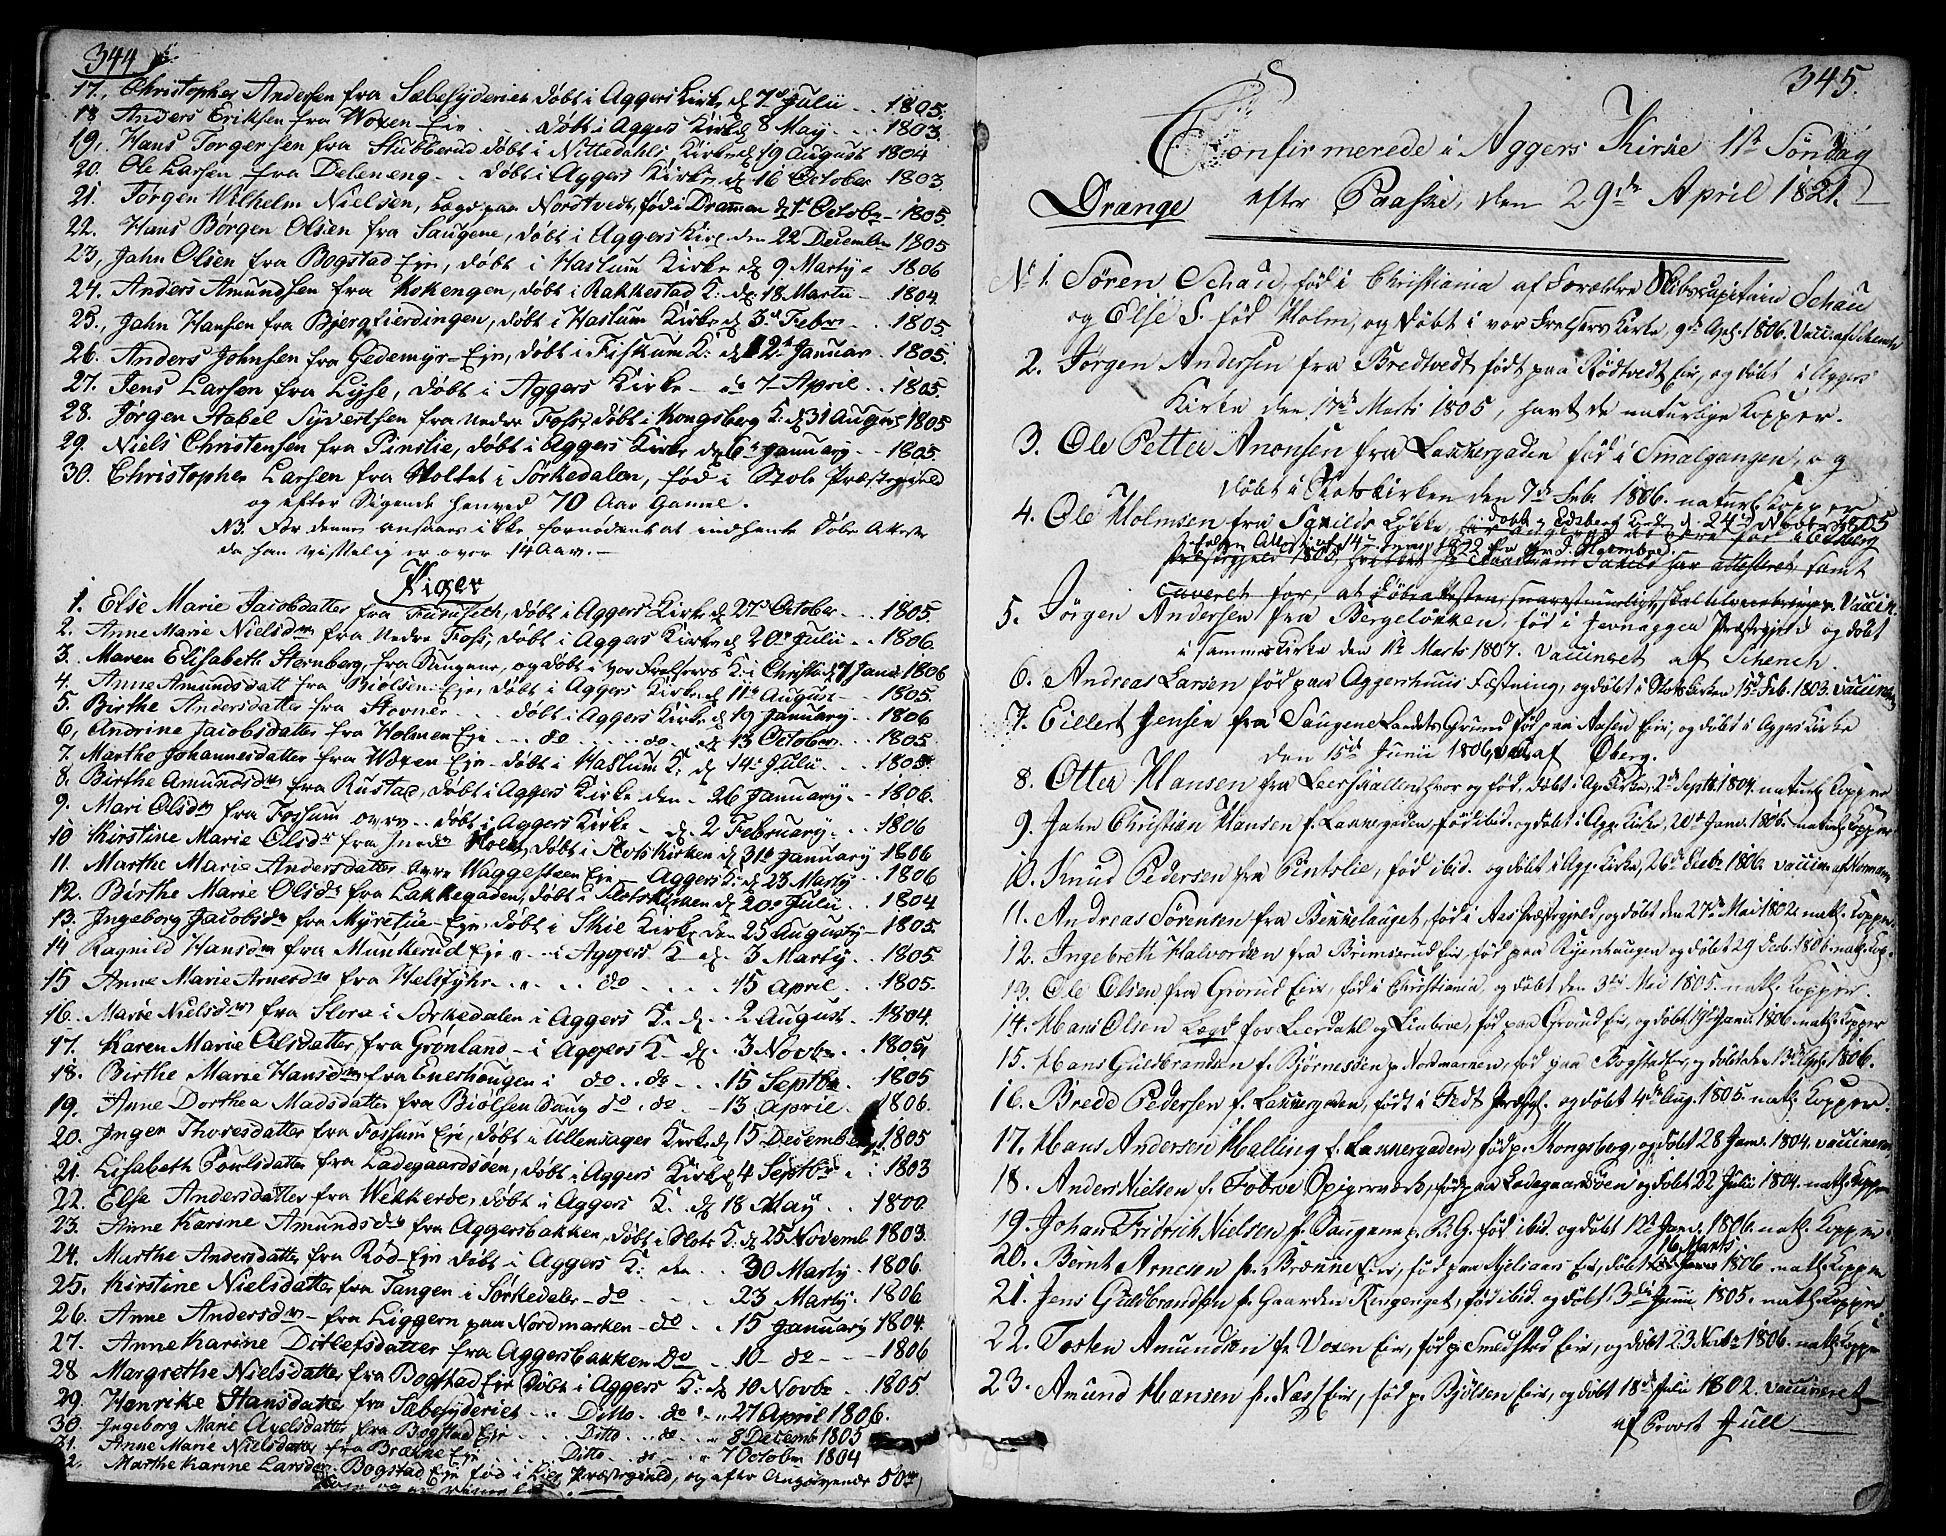 344
17. Christopher Andersen fra Sæbesyderiet døbt i Aggers Kirke d 7d Julii 1805.
18 Anders Eriksen fra Voxen Eie døbt i Aggers Kirke d 8 May 1803.
19. Hans Torgersen fra Stubberud døbt i Nittedahls Kirke d 19 August 1804
20. Ole Larsen fra Deleneng døbt i Aggers Kirke d 16 October 1803.
21. Jørgen Wilhelm Nielsen, Lægd paa Norstvedt, fød i Drammen d 1t Octobr 1805.
22. Hans Børgen Olsen fra Saugene, døbt i Aggers Kirke den 22 December 1805
23, Jahn Olsen fra Bogstad Eie, døbt i Haslum Kirke d 9 Marty 1806
24. Anders Amundsen fra Kokengen, døbt i Rakkestad K: d 18 Marty 1804.
25., Jahn Hansen fra Bjergfierdingen, døbt i Haslum Kirke d 3d Febr 1805.
26. Anders Johnsen fra Gedemyr-Eie, døbt i Fiskum K: d 2d Januar 1805.
27. Jens Larsen fra Lysse, døbt i Aggers Kirke d 7 April 1805.
28. Jørgen Stabel Syvertsen fra Nedre Foss, døbt i Kongsberg K: d 31 August 1805
29. Niels Christensen fra Pinslie, døbt i Aggers Kirke d 6 January 1805.
30. Christopher Larsen fra Holtet i Sørkedalen, fød i Præstegield
og efter Sigende henved 70 Aar Gamel.
NB. For denne ansaaes ikke fornødent at indhente Døbe Attest
da han vistelig er over 14 Aar.
Piger
1. Else Marie Jacobdatter fra Furuseth, døbt i Aggers Kirke d 27 October 1805.
2. Anne Marie Nielsdr fra Nedre Foss, døbt i Aggers Kirke d 20 Julii 1806.
3. Maren Elisabeth Sternberg, fra Saugene, og døbt i Vor Frelsers K: i Christia d 7 Janr 1806
4. Anne Amundsdatt fra Biølsen Eie, døbt i Aggers Kirke d 11 August 1805.
5. Birthe Andersdatter fra Stovner døbt i Aggers Kirke d 19 January 1806
6, Andrine Jacobsdatter fra Holmen Eie do do d 13 October 1805
7. Marthe Johannesdatter fra Voxen Eie døbt i Haslum K: d 14 Julii 1805
8. Birthe Amundsdr fra Rustad, døbt i Aggers Kirke den 26 January 1806.
9. Mari Olsdr fra Fossum døbt i Aggers Kirke d 2 February 1806
10 Kirstine Marie Olsdr fra døbt i Slots Kirken d 31 January 1806
11. Marthe Marie Andersdatter Waggesteen Eie Aggers K: d 23 Marty 1806
12. Birthe Marie Olsdr fra Lakkegaden, døbt i Slots Kirken d 20 Julii 1804
13. Ingeborg Jacobsdr fra Myretue-Eie døbt i Skie Kirke den 25 Augusty 1805.
14 Ragnild Hansdr fra Munkerud Eie i Aggers K d 3 Marty 1805.
15 Anne Marie Arnesdr fra Helsfyhr do 15 April 1805.
16. Marie Nielsdr fra Slora i Sørkedalen i Aggers K. d 2 August 1804.
17. Karen Marie Olsdatter fra Grønland i Aggers K. d 3 Novbr 1805.
18. Birthe Marie Hansdr fra Enerhougen i do do 15 Septbr 1805
19. Anne Dorthea Madsdatter fra Biølsen Saug do do 13 April 1806.
20. Inger Thoresdatter fra Fossum Eie, døbt i Ullensager Kirke d 15 December 1805
21. Lisabeth Poulsdatter fra Ladegaardsøen, døbt i Aggers Kirke 4 Septbr 1803
22. Else Andersdatter fra Wekkerøe, døbt i Aggers K. d 18 May 1800.
23. Anne Karine Amundsdr fra Aggersbakken, døbt i Slots K: d 25 Novemb 1803.
24. Marthe Andersdatter fra Rød-Eie døbt i Aggers K: den 30 Marty 1806.
25. Kirstine Nielsdatter fra Tangen i Sørkedalen do 23 Marty 1806
26. Anne Andersdr fra Liggern paa Nordmarken do 15 January 1804.
27. Anne Karine Ditlefsdatter fra Aggersbakken do 10 do 1806
28 Margrethe Nielsdatter fra Bogstad Eie døbt i Aggers K: d 10 Novbr 1805.
29. Henrike Hansdatter fra Sæbesyderiet Ditto do 27 April 1806.
30. Ingeborg Marie Axelsdatter fra Bogstad Eie Ditto do 8 Decemb 1805
31. Anne Marie Nielsdatter fra Brække Eie Ditto do 7 October 1804
2. Marthe Karine Larsdr Bogstad Eie fød i Præstegield, og efter Angivende 50
345.
Confirmerede i Aggers Kirke 1te Søndag
efter Paaske, den 29de April 1821.
Drænge
No 1. Søren Schau, fød i Christiania af Forældre Skibscapitain Schau
og Else S. fød Holm, og døbt i vor Frelsers Kirke, 9de Apl. 1806. Vacc. af Schenck
2. Jørgen Andersen fra Bredtvedt født paa Rødtvedt Eie, og døbt i Aggers
Kirke den 17d Marts 1805, havt de naturlige Kopper.
3. Ole Petter Anonsen fra Lakkegaden fød i Smalgangen, og
døbt i Slotskirken den 7de Feb. 1806. naturl. Kopper
4. Ole Holmsen fra Løkke, døbt i Edsberg Kirke d. 24de Novbr 1805
samt
caveret for, at Vaccin.
5. Jørgen Andersen fra Bergeløkken, fød i Jevnagger Præstegield og døbt
i samme Kirke den 1te Marts 1807. vaccineret af Schench.
6. Andreas Larsen fød paa Aggershuus Fæstning, og døbt i Slotskirken 15d Feb. 1803. vaccineret
7. Eillert Jensen fra Saugene Landets Grund fød paa Aasen Eie, og døbt i Aggers Kirke
den 15d Junii 1806, vac. af Oberg.
8. Otter Hansen fra Leerskallen hvor og fød, døbt i Ag. Kirke, 2d Septb. 1804. naturl. Kopper
9. Jahn Christian Hansen f. Lakkegaden, fød ibid. og døbt i Agg. Kirke, 20d Janv. 1806. naturl. Kopper
10. Knud Pedersen fra Pintslie, fød ibid. og døbt i Agg. Kirke, 26d Decbr 1806. vaccin. af
11. Andreas Sørensen fra Bekkelauget, fød i Aas Præstegield, og døbt den 27de Mai 1802. natl. Kopper
12. Ingebreth Halvorsen fra Brinserud Eie, fød paa Ryenhaugen og døbt 29 1806. natl. Kop.
13. Ole Olsen fra Grorud Eie, fød i Christiania, og døbt den 3de Mai 1805. natl. Kopper.
14. Hans Olsen Lægd for Leerdahl og Linderue, fød paa Grorud Eie, og døbt 19de Janv. 1806. natl. Kopper
15. Hans Guldbrandsen f. Bjørnesøen p. Nordmarken, fød paa Bogstad Eie, og døbt den 13d 1806.
16. Brede Pedersen f. Lakkegaden, født i Fedt Præstgl. og døbt 4de Aug. 1805. natl. Kopper.
17. Hans Andersen Halling f. Lakkergaden, fød p. Kongsberg, og døbt 28 Janv. 1804. vaccineret
18. Anders Nielsen f. Spigerverk, fød paa Ladegaardsøen og døbt 22 Julii 1804. natl. Kopper
19. Johan Fridrich Nielsen f. Saugene p. B. G. fød ibid. og døbt 12d Janv. 1806. natl. Kopper
20. Bernt Arnesen f. Brænne Eie, fød paa Kjelsaas Eie, døbt 16 Marts 1806 natl. Kopper
21. Jens Guldbrandsen f. Gaarden Ringeriget, fød ibid. og døbt 3de Junii 1805. natl. Kopper
22. Tosten Amundsen f. Voxen Eie, fød p. Smedstad Eie, og døbt 23 1806. natl. Kopper
23. Amund Hansen f. Næss Eie, fød p. Bjølsen Eie, og døbt 18d Julii 1802. vaccineret
af Provst Jull